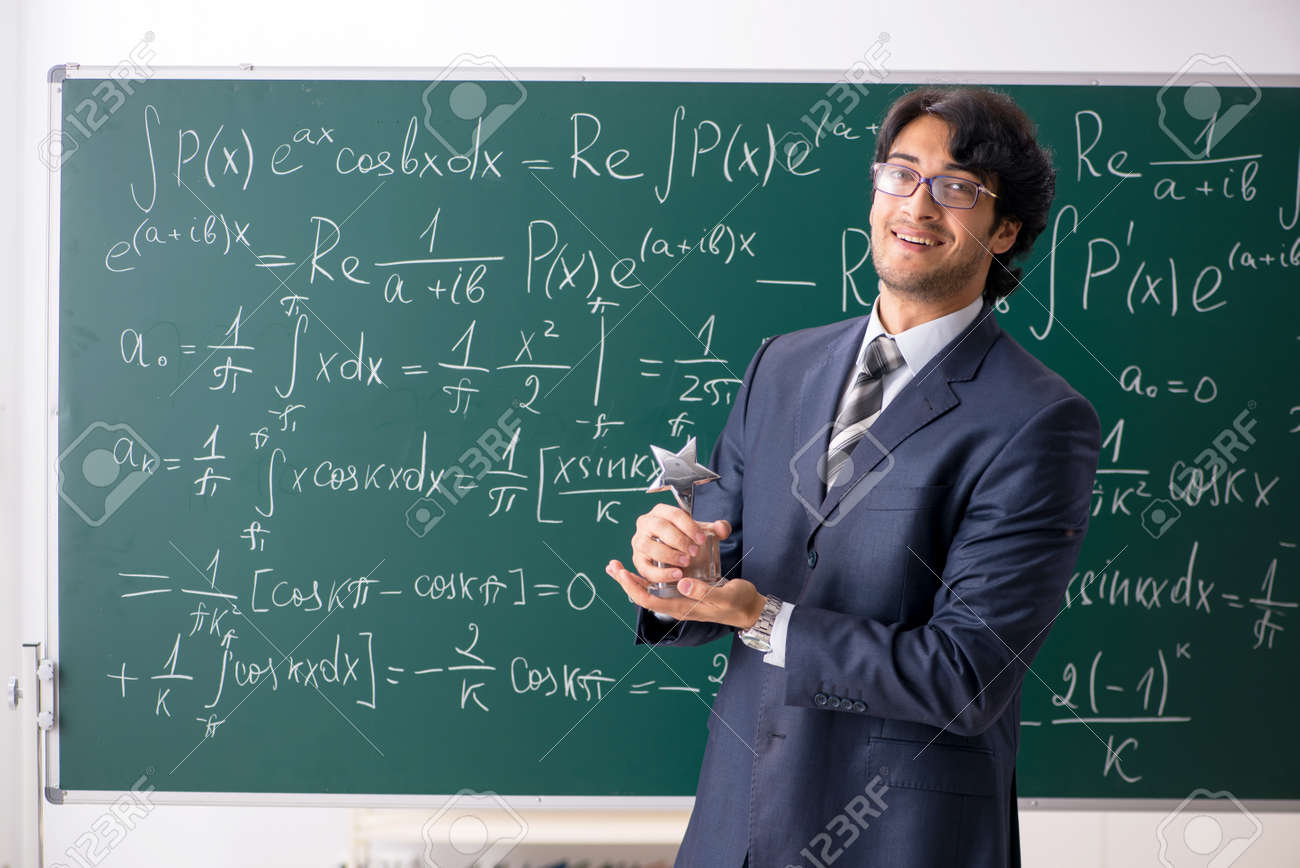 ∫P(x)e^{ax}cosbxdx = Re ∫P(x)e^{(a+ Re 1/(a+ib)
e^{(a+ib)x} = Re 1/(a+ib) P(x)e^{(a+ib)x} − R ∫P'(x)e^{(a+ib
a₀ = 1/π ∫_{-π}^{π} xdx = 1/π x²/2 |_{-π}^{π} = 1/2π a₀=0
aₖ = 1/π ∫_{-π}^{π} xcoskxdx = 1/π [xsinkx/k 1/πk² coskx
= 1/πk² [coskπ − coskπ] = 0 xsinkxdx = 1/π
+ 1/k ∫_{-π}^{π} coskxdx] = −2/k coskπ = −2 − 2(−1)^k/k
123RF